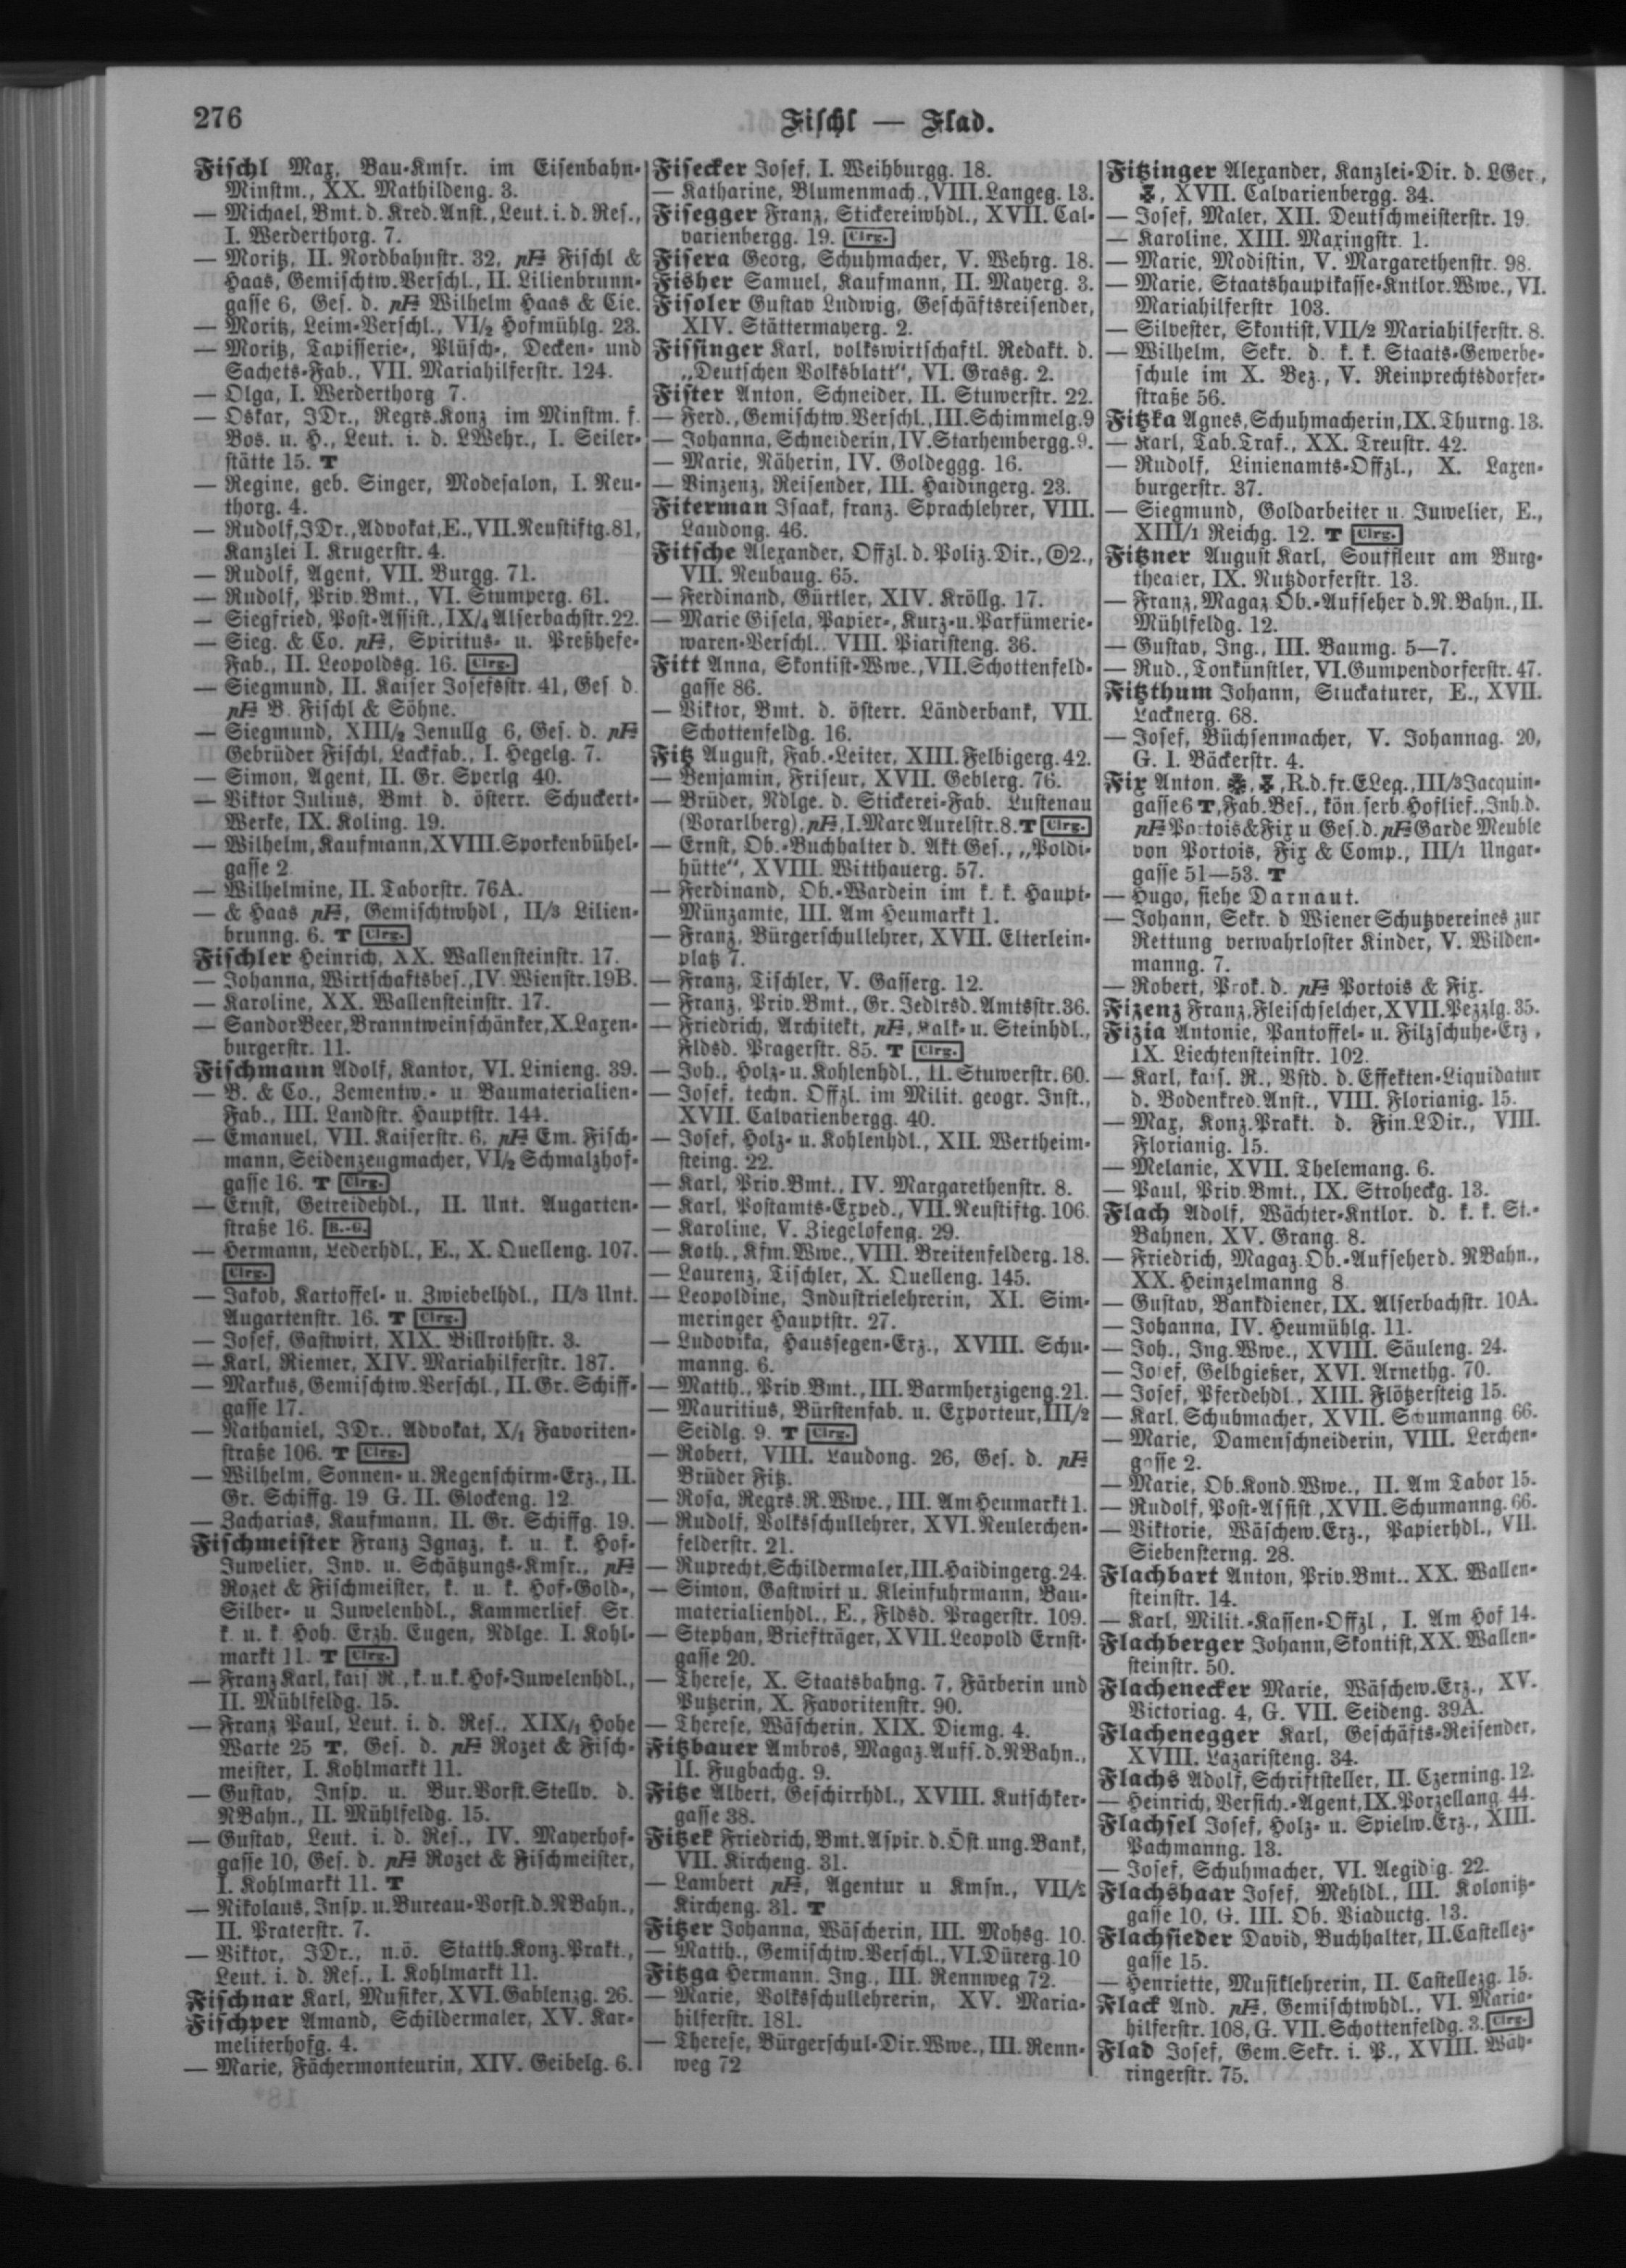 276
Fischl — Flad.
Fischl Max, Bau-Kmsr. im Eisenbahn-
Minstm., XX. Mathildeng. 3.
— Michael, Bmt. d. Kred. Anst., Leut. i. d. Res.,
I. Werderthorg. 7.
— Moritz, II. Nordbahnstr. 32, Fischl &
Haas, Gemischtw. Verschl., II. Lilienbrunn-
gasse 6, Ges. d. Wilhelm Haas & Cie.
— Moritz, Leim-Verschl., VI/2 Hofmühlg. 23.
— Moritz, Tapisserie-, Plüsch-, Decken- und
Sachets-Fab., VII. Mariahilferstr. 124.
— Olga, I. Werderthorg 7.
— Oskar, JDr., Regrs. Konz im Minstm. f.
Bos. u. H., Leut. i. d. LWehr., I. Seiler-
stätte 15. T
— Regine, geb. Singer, Modesalon, I. Neu-
thorg. 4.
— Rudolf, JDr., Advokat, E., VII. Neustiftg. 81,
Kanzlei I. Krugerstr. 4.
— Rudolf, Agent, VII. Burgg. 71.
— Rudolf, Priv. Bmt., VI. Stumperg. 61.
— Siegfried, Post-Assist., IX/4 Alserbachstr. 22.
— Sieg. & Co. Spiritus- u. Preßhefe-
Fab., II. Leopoldsg. 16. Clrg.
— Siegmund, II. Kaiser Josefsstr. 41, Ges d.
B. Fischl & Söhne.
— Siegmund, XIII/2 Jenullg 6, Ges. d.
Gebrüder Fischl, Lackfab., I. Hegelg. 7.
— Simon, Agent, II. Gr. Sperlg 40.
— Viktor Julius, Bmt d. österr. Schuckert-
Werke, IX. Koling. 19.
— Wilhelm, Kaufmann, XVIII. Sporkenbühel-
gasse 2
— Wilhelmine, II. Taborstr. 76A.
— & Haas Gemischtwhdl, II/3 Lilien-
brunng. 6. T Clrg.
Fischler Heinrich, XX. Wallensteinstr. 17.
— Johanna, Wirtschaftsbes., IV. Wienstr. 19B.
— Karoline, XX. Wallensteinstr. 17.
— Sandor Beer, Branntweinschänker, X. Laxen-
burgerstr. 11.
Fischmann Adolf, Kantor, VI. Linieng. 39.
— B. & Co., Zementw.- u Baumaterialien-
Fab., III. Landstr. Hauptstr. 144.
— Emanuel, VII. Kaiserstr. 6, Em. Fisch-
mann, Seidenzeugmacher, VI/2 Schmalzhof-
gasse 16. T Clrg.
— Ernst, Getreidehdl., II. Unt. Augarten-
straße 16. B.-G.
— Hermann, Lederhdl., E., X. Quelleng. 107.
Clrg.
— Jakob, Kartoffel- u. Zwiebelhdl., II/3 Unt.
Augartenstr. 16. T Clrg.
— Josef, Gastwirt, XIX. Billrothstr. 3.
— Karl, Riemer, XIV. Mariahilferstr. 187.
— Markus, Gemischtw. Verschl., II. Gr. Schiff-
gasse 17.
— Nathaniel, JDr., Advokat, X/1 Favoriten-
straße 106. T Clrg.
— Wilhelm, Sonnen- u. Regenschirm-Erz., II.
Gr. Schiffg. 19 G. II. Glockeng. 12
— Zacharias, Kaufmann, II. Gr. Schiffg. 19.
Fischmeister Franz Ignaz, k. u. k. Hof-
Juwelier, Inv. u. Schätzungs-Kmsr.,
Rozet & Fischmeister, k. u. k. Hof-Gold-,
Silber- u Juwelenhdl., Kammerlief Sr
k. u. k. Hoh. Erzh. Eugen, Ndlge. I. Kohl-
markt 11. T Clrg.
— Franz Karl, kais R., k. u. k. Hof-Juwelenhdl.,
II. Mühlfeldg. 15.
— Franz Paul, Leut. i. d. Res., XIX/1 Hohe
Warte 25 T, Ges. d. Rozet & Fisch-
meister, I. Kohlmarkt 11.
— Gustav, Insp. u. Bur. Vorst. Stellv. d.
NBahn., II. Mühlfeldg. 15.
— Gustav, Leut. i. d. Res., IV. Mayerhof-
gasse 10, Ges. d. Rozet & Fischmeister,
I. Kohlmarkt 11. T
— Nikolaus, Insp. u. Bureau-Vorst. d. NBahn.,
II. Praterstr. 7.
— Viktor, JDr., n.ö. Statth. Konz. Prakt.,
Leut. i. d. Res., I. Kohlmarkt 11.
Fischnar Karl, Musiker, XVI. Gablenzg. 26.
Fischper Amand, Schildermaler, XV. Kar-
meliterhofg. 4.
— Marie, Fächermonteurin, XIV. Geibelg. 6.
Fisecker Josef, I. Weihburgg. 18.
— Katharine, Blumenmach., VIII. Langeg. 13.
Fisegger Franz, Stickereiwhdl., XVII. Cal-
varienbergg. 19. Clrg.
Fisera Georg, Schuhmacher, V. Wehrg. 18.
Fisher Samuel, Kaufmann, II. Mayerg. 3.
Fisoler Gustav Ludwig, Geschäftsreisender,
XIV. Stättermayerg. 2.
Fissinger Karl, volkswirtschaftl. Redakt. d.
„Deutschen Volksblatt“, VI. Grasg. 2.
Fister Anton, Schneider, II. Stuwerstr. 22.
— Ferd., Gemischtw. Verschl., III. Schimmelg. 9
— Johanna, Schneiderin, IV. Starhembergg. 9.
— Marie, Näherin, IV. Goldeggg. 16.
— Vinzenz, Reisender, III. Haidingerg. 23.
Fiterman Isaak, franz. Sprachlehrer, VIII.
Laudong. 46.
Fitsche Alexander, Offzl. d. Poliz. Dir., Ⓓ2.,
VII. Neubaug. 65.
— Ferdinand, Gürtler, XIV. Kröllg. 17.
— Marie Gisela, Papier-, Kurz- u. Parfümerie-
waren-Verschl., VIII. Piaristeng. 36.
Fitt Anna, Skontist-Wwe., VII. Schottenfeld-
gasse 86.
— Viktor, Bmt. d. österr. Länderbank, VII.
Schottenfeldg. 16.
Fitz August, Fab.-Leiter, XIII. Felbigerg. 42.
— Benjamin, Friseur, XVII. Geblerg. 76.
— Brüder, Ndlge. d. Stickerei-Fab. Lustenau
(Vorarlberg), I. Marc Aurelstr. 8. T Clrg.
— Ernst, Ob.-Buchhalter d. Akt Ges., „Poldi-
hütte“, XVIII. Witthauerg. 57.
— Ferdinand, Ob.-Wardein im k. k. Haupt-
Münzamte, III. Am Heumarkt 1.
— Franz, Bürgerschullehrer, XVII. Elterlein-
platz 7.
— Franz, Tischler, V. Gasserg. 12.
— Franz, Priv. Bmt., Gr. Jedlrsd. Amtsstr. 36.
— Friedrich, Architekt, Kalk- u. Steinhdl.,
Fldsd. Pragerstr. 85. T Clrg.
— Joh., Holz- u. Kohlenhdl., II. Stuwerstr. 60.
— Josef, techn. Offzl. im Milit. geogr. Inst.,
XVII. Calvarienbergg. 40.
— Josef, Holz- u. Kohlenhdl., XII. Wertheim-
steing. 22.
— Karl, Priv. Bmt., IV. Margarethenstr. 8.
— Karl, Postamts-Exped., VII. Neustiftg. 106.
— Karoline, V. Ziegelofeng. 29.
— Koth., Kfm. Wwe., VIII. Breitenfelderg. 18.
— Laurenz, Tischler, X. Quelleng. 145.
— Leopoldine, Industrielehrerin, XI. Sim-
meringer Hauptstr. 27.
— Ludovika, Haussegen-Erz., XVIII. Schu-
manng. 6.
— Matth., Priv. Bmt., III. Barmherzigeng. 21.
— Mauritius, Bürstenfab. u. Exporteur, III/2
Seidlg. 9. T Clrg.
— Robert, VIII. Laudong. 26, Ges. d.
Brüder Fitz.
— Rosa, Regrs. R. Wwe., III. Am Heumarkt 1.
— Rudolf, Volksschullehrer, XVI. Neulerchen-
felderstr. 21.
— Ruprecht, Schildermaler, III. Haidingerg. 24.
— Simon, Gastwirt u. Kleinfuhrmann, Bau-
materialienhdl., E., Fldsd. Pragerstr. 109.
— Stephan, Briefträger, XVII. Leopold Ernst-
gasse 20.
— Therese, X. Staatsbahng. 7, Färberin und
Putzerin, X. Favoritenstr. 90.
— Therese, Wäscherin, XIX. Diemg. 4.
Fitzbauer Ambros, Magaz. Aufs. d. NBahn.,
II. Fugbachg. 9.
Fitze Albert, Geschirrhdl., XVIII. Kutschker-
gasse 38.
Fitzek Friedrich, Bmt. Aspir. d. Öst. ung. Bank,
VII. Kircheng. 31.
— Lambert Agentur u Kmsn., VII/2
Kircheng. 31. T
Fitzer Johanna, Wäscherin, III. Mohsg. 10.
— Matth., Gemischtw. Verschl., VI. Dürerg. 10
Fitzga Hermann, Ing., III. Rennweg 72.
— Marie, Volksschullehrerin, XV. Maria-
hilferstr. 181.
— Therese, Bürgerschul-Dir. Wwe., III. Renn-
weg 72
Fitzinger Alexander, Kanzlei-Dir. d. LGer.,
XVII. Calvarienbergg. 34.
— Josef, Maler, XII. Deutschmeisterstr. 19.
— Karoline, XIII. Maxingstr. 1.
— Marie, Modistin, V. Margarethenstr. 98.
— Marie, Staatshauptkasse-Kntlor. Wwe., VI.
Mariahilferstr 103.
— Silvester, Skontist, VII/2 Mariahilferstr. 8.
— Wilhelm, Sekr. d. k. k. Staats-Gewerbe-
schule im X. Bez., V. Reinprechtsdorfer-
straße 56.
Fitzka Agnes, Schuhmacherin, IX. Thurng. 13.
— Karl, Tab. Traf., XX. Treustr. 42.
— Rudolf, Linienamts-Offzl., X. Laxen-
burgerstr. 37.
— Siegmund, Goldarbeiter u. Juwelier, E.,
XIII/1 Reichg. 12. T Clrg.
Fitzner August Karl, Souffleur am Burg-
theater, IX. Nutzdorferstr. 13.
— Franz, Magaz Ob.-Aufseher d. N. Bahn., II.
Mühlfeldg. 12.
— Gustav, Ing., III. Baumg. 5—7.
— Rud., Tonkünstler, VI. Gumpendorferstr. 47.
Fitzthum Johann, Stuckaturer, E., XVII.
Lacknerg. 68.
— Josef, Büchsenmacher, V. Johannag. 20,
G. I. Bäckerstr. 4.
Fix Anton, R. d. fr. ELeg., III/3 Jacquin-
gasse 6 T, Fab. Bes., kön. serb. Hoflief., Inh. d.
Portois & Fix u Ges. d. Garde Meuble
von Portois, Fix & Comp., III/1 Ungar-
gasse 51—53. T
— Hugo, siehe Darnaut.
— Johann, Sekr. d Wiener Schutzvereines zur
Rettung verwahrloster Kinder, V. Wilden-
manng. 7.
— Robert, Prok. d. Portois & Fix.
Fizenz Franz, Fleischselcher, XVII. Pezzlg. 35.
Fizia Antonie, Pantoffel- u. Filzschuhe-Erz,
IX. Liechtensteinstr. 102.
— Karl, kais. R., Vstd. d. Effekten-Liquidatur
d. Bodenkred. Anst., VIII. Florianig. 15.
— Max, Konz. Prakt. d. Fin. LDir., VIII.
Florianig. 15.
— Melanie, XVII. Thelemang. 6.
— Paul, Priv. Bmt., IX. Stroheckg. 13.
Flach Adolf, Wächter-Kntlor. d. k. k. St.-
Bahnen, XV. Grang. 8.
— Friedrich, Magaz. Ob.-Aufseher d. NBahn.,
XX. Heinzelmanng 8.
— Gustav, Bankdiener, IX. Alserbachstr. 10A.
— Johanna, IV. Heumühlg. 11.
— Joh., Ing. Wwe., XVIII. Säuleng. 24.
— Josef, Gelbgießer, XVI. Arnethg. 70.
— Josef, Pferdehdl., XIII. Flötzersteig 15.
— Karl, Schuhmacher, XVII. Schumanng 66.
— Marie, Damenschneiderin, VIII. Lerchen-
gasse 2.
— Marie, Ob. Kond. Wwe., II. Am Tabor 15.
— Rudolf, Post-Assist., XVII. Schumanng. 66.
— Viktorie, Wäschew. Erz., Papierhdl., VII.
Siebensterng. 28.
Flachbart Anton, Priv. Bmt., XX. Wallen-
steinstr. 14.
— Karl, Milit.-Kassen-Offzl, I. Am Hof 14.
Flachberger Johann, Skontist, XX. Wallen-
steinstr. 50.
Flachenecker Marie, Wäschew. Erz., XV.
Victoriag. 4, G. VII. Seideng. 39A.
Flachenegger Karl, Geschäfts-Reisender,
XVIII. Lazaristeng. 34.
Flachs Adolf, Schriftsteller, II. Czerning. 12.
— Heinrich, Versich.-Agent, IX. Porzellang 44.
Flachsel Josef, Holz- u. Spielw. Erz., XIII.
Pachmanng. 13.
— Josef, Schuhmacher, VI. Aegidig. 22.
Flachshaar Josef, Mehldl., III. Kolonitz-
gasse 10, G. III. Ob. Viaductg. 13.
Flachsieder David, Buchhalter, II. Castellez-
gasse 15.
— Henriette, Musiklehrerin, II. Castellezg. 15.
Flack And. Gemischtwhdl., VI. Maria-
hilferstr. 108, G. VII. Schottenfeldg. 3. Clrg.
Flad Josef, Gem. Sekr. i. P., XVIII. Wäh-
ringerstr. 75.